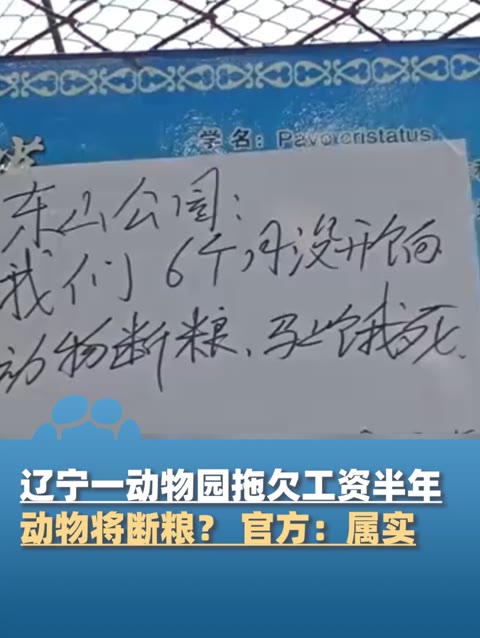 学名：Pavo cristatus
东山公园：
我们6个月没开饷
动物断粮、马上饿死.
辽宁一动物园拖欠工资半年
动物将断粮？ 官方：属实